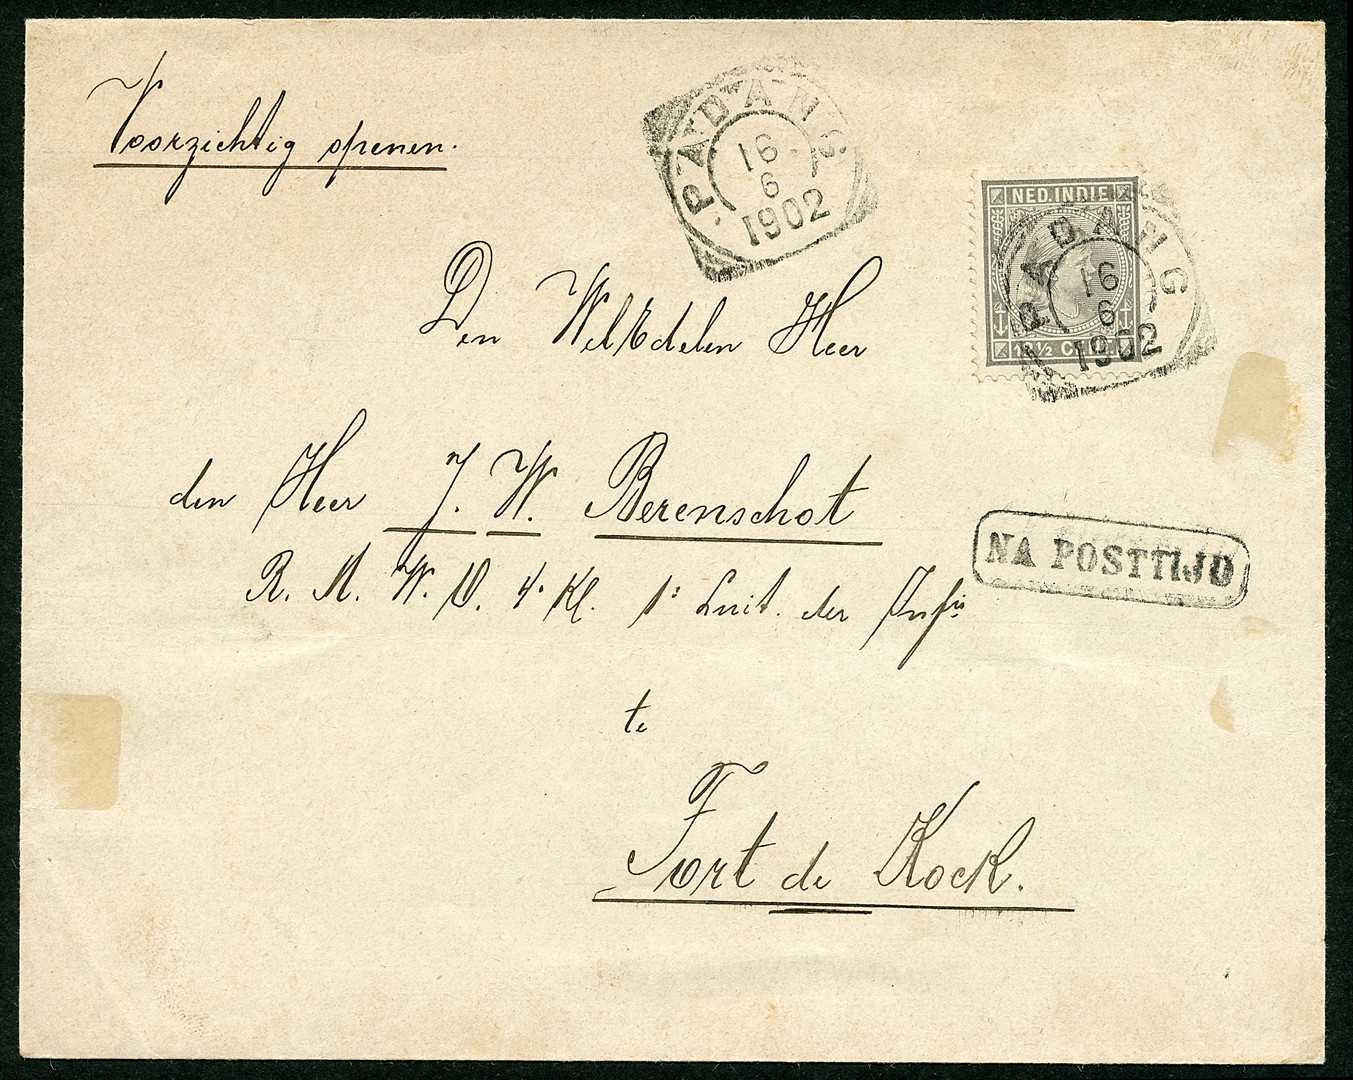 Voorzichtig openen.
PADANG
16
6
1902
NED. INDIE
12½ CENT.
PADANG
16
6
1902
Den WelEdelen Heer
den Heer J. W. Berenschot
R. M. W. O. 4e Kl. 1e Luit. der Infie
NA POSTTIJD
te
Fort de Kock.